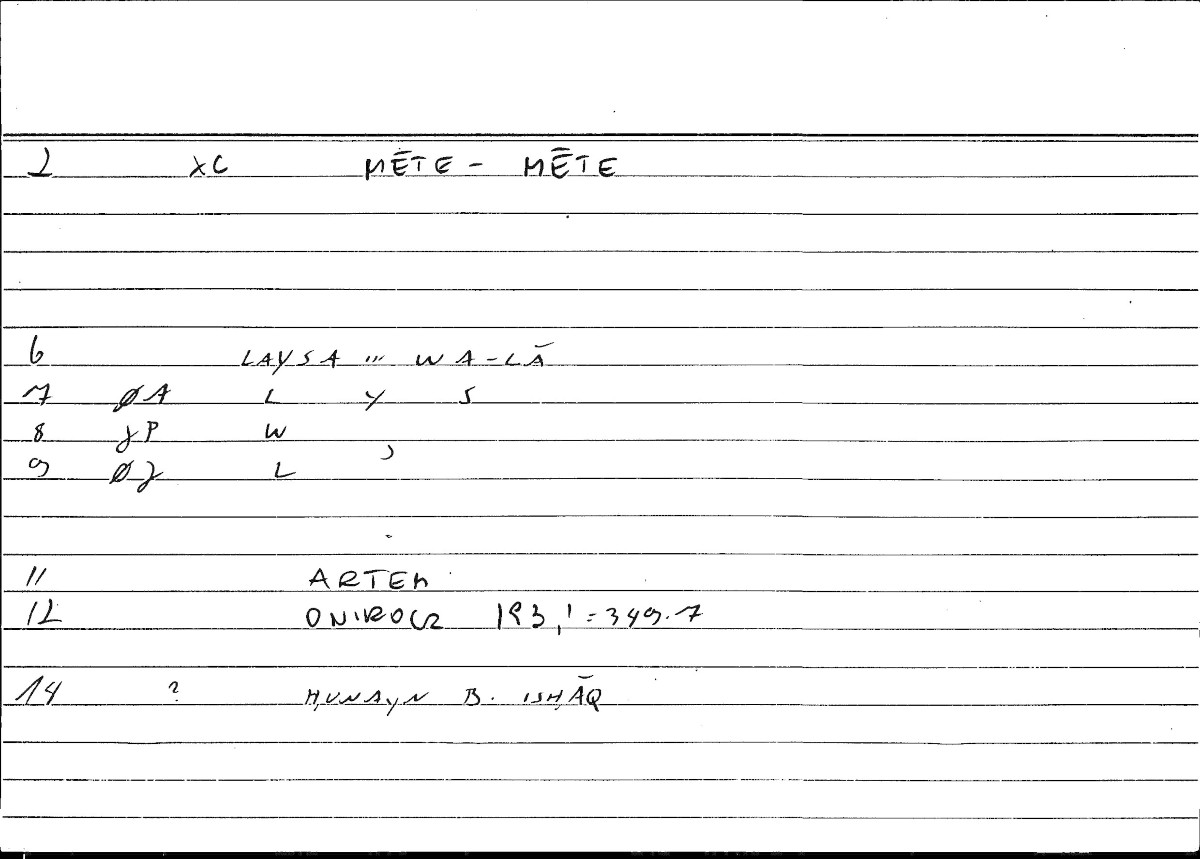 2 XC MĒTE - MĒTE
6 LAYSA ... WA-LĀ
7 ØA L Y S
8 JP W
9 ØJ L ʾ
11 ARTEM
12 ONIROCR 193,1=349.7
14 ? ḤUNAYN B. ISḤĀQ